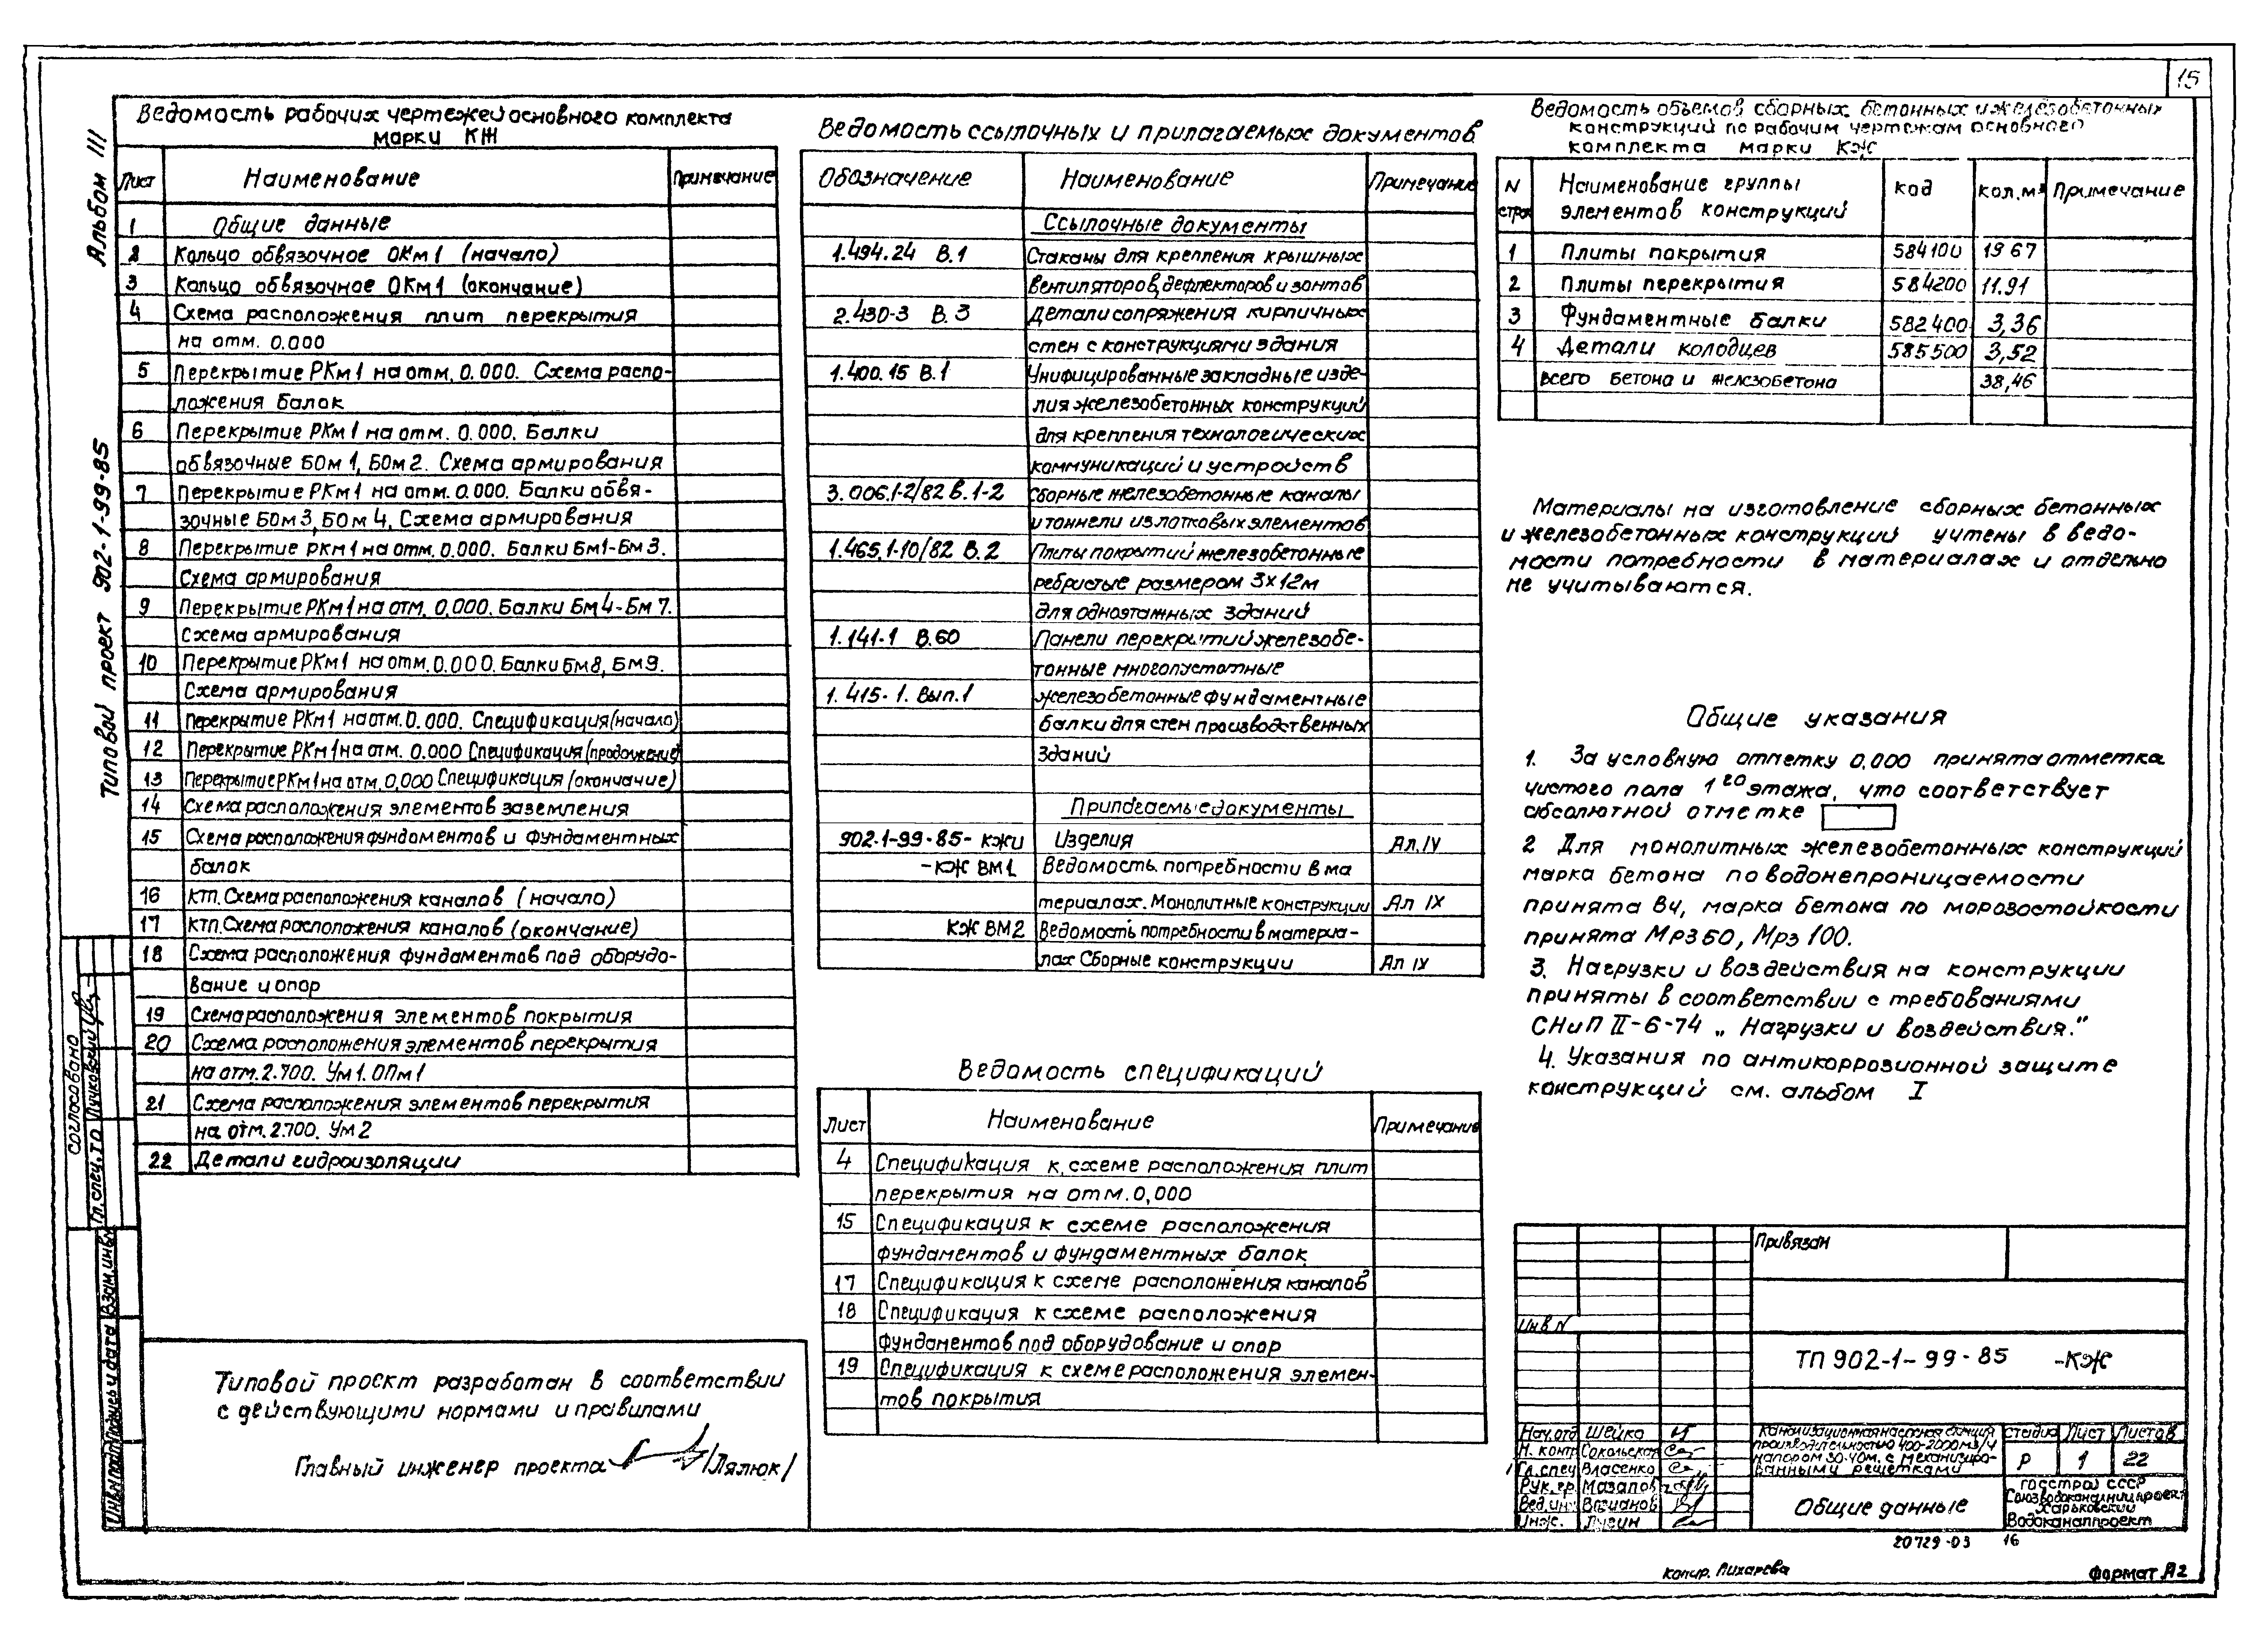 15
Альбом III
Типовой проект 902-1-99-85
Ведомость рабочих чертежей основного комплекта
марки КЖ
Лист Наименование Примечание
1 Общие данные
2 Кольцо обвязочное ОКм1 (начало)
3 Кольцо обвязочное ОКм1 (окончание)
4 Схема расположения плит перекрытия
на отм. 0.000
5 Перекрытие РКм1 на отм. 0.000. Схема распо-
ложения балок
6 Перекрытие РКм1 на отм. 0.000. Балки
обвязочные БОм1, БОм2. Схема армирования
7 Перекрытие РКм1 на отм. 0.000. Балки обвя-
зочные БОм3, БОм4, Схема армирования
8 Перекрытие РКм1 на отм. 0.000. Балки Бм1-Бм3.
Схема армирования
9 Перекрытие РКм1 на отм. 0,000. Балки Бм4-Бм7.
Схема армирования
10 Перекрытие РКм1 на отм. 0.000. Балки Бм8, Бм9.
Схема армирования
11 Перекрытие РКм1 на отм. 0.000. Спецификация (начало)
12 Перекрытие РКм1 на отм. 0.000 Спецификация (продолжение)
13 Перекрытие РКм1 на отм. 0,000 Спецификация (окончание)
14 Схема расположения элементов заземления
15 Схема расположения фундаментов и фундаментных
балок
16 КТП. Схема расположения каналов (начало)
17 КТП. Схема расположения каналов (окончание)
18 Схема расположения фундаментов под оборудо-
вание и опор
19 Схема расположения элементов покрытия
20 Схема расположения элементов перекрытия
на отм. 2.700. Ум1. ОПм1
21 Схема расположения элементов перекрытия
на отм. 2.700. Ум2
22 Детали гидроизоляции
Типовой проект разработан в соответствии
с действующими нормами и правилами
Главный инженер проекта /Лялюк/
Ведомость ссылочных и прилагаемых документов
Обозначение Наименование Примечание
Ссылочные документы
1.494.24 В.1 Стаканы для крепления крышных
вентиляторов, дефлекторов и зонтов
2.430-3 В.3 Детали сопряжения кирпичных
стен с конструкциями здания
1.400.15 В.1 Унифицированные закладные изде-
лия железобетонных конструкций
для крепления технологических
коммуникаций и устройств
3.006.1-2/82 В.1-2 Сборные железобетонные каналы
и тоннели из лотковых элементов
1.465.1-10/82 В.2 Плиты покрытий железобетонные
ребристые размером 3х12м
для одноэтажных зданий
1.141-1 В.60 Панели перекрытий железобе-
тонные многопустотные
1.415-1. Вып.1 железобетонные фундаментные
балки для стен производственных
зданий
Прилагаемые документы
902-1-99-85- КЖИ Изделия Ал. IV
-КЖ ВМ1 Ведомость потребности в ма
териалах. Монолитные конструкции Ал IX
КЖ ВМ2 Ведомость потребности в материа-
лах Сборные конструкции Ал IX
Ведомость спецификаций
Лист Наименование Примечание
4 Спецификация к схеме расположения плит
перекрытия на отм. 0,000
15 Спецификация к схеме расположения
фундаментов и фундаментных балок
17 Спецификация к схеме расположения каналов
18 Спецификация к схеме расположения
фундаментов под оборудование и опор
19 Спецификация к схеме расположения элемен-
тов покрытия
Ведомость объемов сборных бетонных и железобетонных
конструкций по рабочим чертежам основного
комплекта марки КЖ
N строк Наименование группы элементов конструкций код кол. м³ Примечание
1 Плиты покрытия 584100 19 67
2 Плиты перекрытия 584200 11.91
3 Фундаментные балки 582400 3,36
4 Детали колодцев 585500 3,52
Всего бетона и железобетона 38,46
Материалы на изготовление сборных бетонных
и железобетонных конструкций учтены в ведо-
мости потребности в материалах и отдельно
не учитываются.
Общие указания
1. За условную отметку 0,000 принята отметка
чистого пола 1го этажа, что соответствует
абсолютной отметке
2 Для монолитных железобетонных конструкций
марка бетона по водонепроницаемости
принята В4, марка бетона по морозостойкости
принята Мрз50, Мрз 100.
3. Нагрузки и воздействия на конструкции
приняты в соответствии с требованиями
СНиП II-6-74 „Нагрузки и воздействия."
4. Указания по антикоррозионной защите
конструкций см. альбом I
Привязан
Инв N
ТП 902-1-99-85 -КЖ
Нач.отд Шейко
Н. контр Сокольская
Гл.спец Власенко
Рук.гр.
Вед.инж
Инж.
Канализационная насосная станция
производительностью 400-2000м3/ч
напором 30-40м. с механизиро-
ванными решетками
Стадия Лист Листов
Р 1 22
Общие данные
Госстрой СССР
Союзводоканалниипроект
Харьковский
Водоканалпроект
20729-03 16
Копир. Лихарева
Формат А2
Согласовано
Гл. спец. ТО Лучковский
Инв.N подл Подпись и дата Взам.инв.N